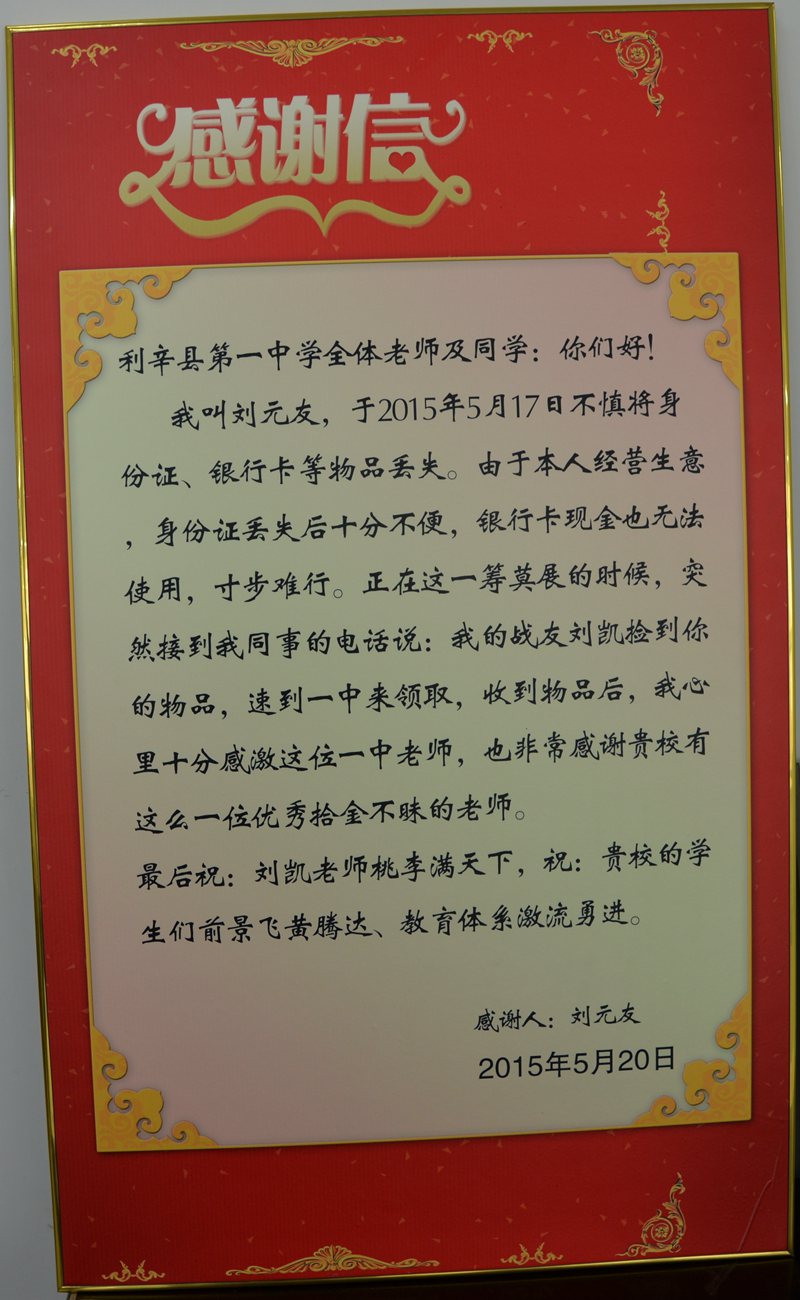 感谢信
利辛县第一中学全体老师及同学：你们好！
我叫刘元友，于2015年5月17日不慎将身
份证、银行卡等物品丢失。由于本人经营生意
，身份证丢失后十分不便，银行卡现金也无法
使用，寸步难行。正在这一筹莫展的时候，突
然接到我同事的电话说：我的战友刘凯捡到你
的物品，速到一中来领取，收到物品后，我心
里十分感激这位一中老师，也非常感谢贵校有
这么一位优秀拾金不昧的老师。
最后祝：刘凯老师桃李满天下，祝：贵校的学
生们前景飞黄腾达、教育体系激流勇进。
感谢人：刘元友
2015年5月20日